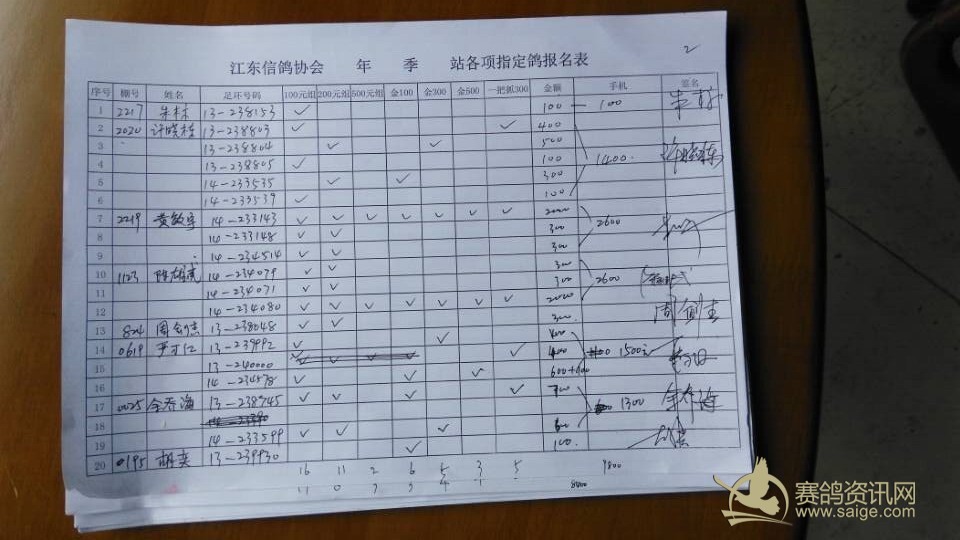 2
江东信鸽协会 年 季 站各项指定鸽报名表
序号 棚号 姓名 足环号码 100元组 200元组 500元组 金100 金300 金500 一把抓300 金额 手机 签名
1 2217 朱栋 13-238153 ✓ 100 100 朱栋
2 2020 许晓栋 13-238803 ✓ ✓ 400
3 13-238804 ✓ ✓ 500
4 13-238805 ✓ 100 1400. 许晓栋
5 14-233535 ✓ ✓ 300
6 14-233539 ✓ 100
7 2219 黄敏宇 14-233143 ✓ ✓ ✓ ✓ ✓ ✓ ✓ 2000
8 14-233148 ✓ ✓ 300 2600
9 14-234514 ✓ ✓ 300
10 1123 陈雄武 14-234079 ✓ ✓ 300
11 14-234071 ✓ ✓ 300 2600
12 14-234080 ✓ ✓ ✓ ✓ ✓ ✓ ✓ 2000
13 824 周剑杰 13-238048 ✓ ✓ 300 周剑杰
14 0619 13-239992 ✓ ✓ 400
15 13-240000 ✓ 400 1500元
16 14-234578 ✓ ✓ ✓ 600+600
17 0025 余春海 13-238745 ✓ ✓ ✓ ✓ 700 1300 余春海
18
19 14-233599 ✓ ✓ ✓ 600
20 0195 胡奕 13-239930 ✓ 100
16 11 2 6 5 3 5 9800
8400
赛鸽资讯网
www.saige.com